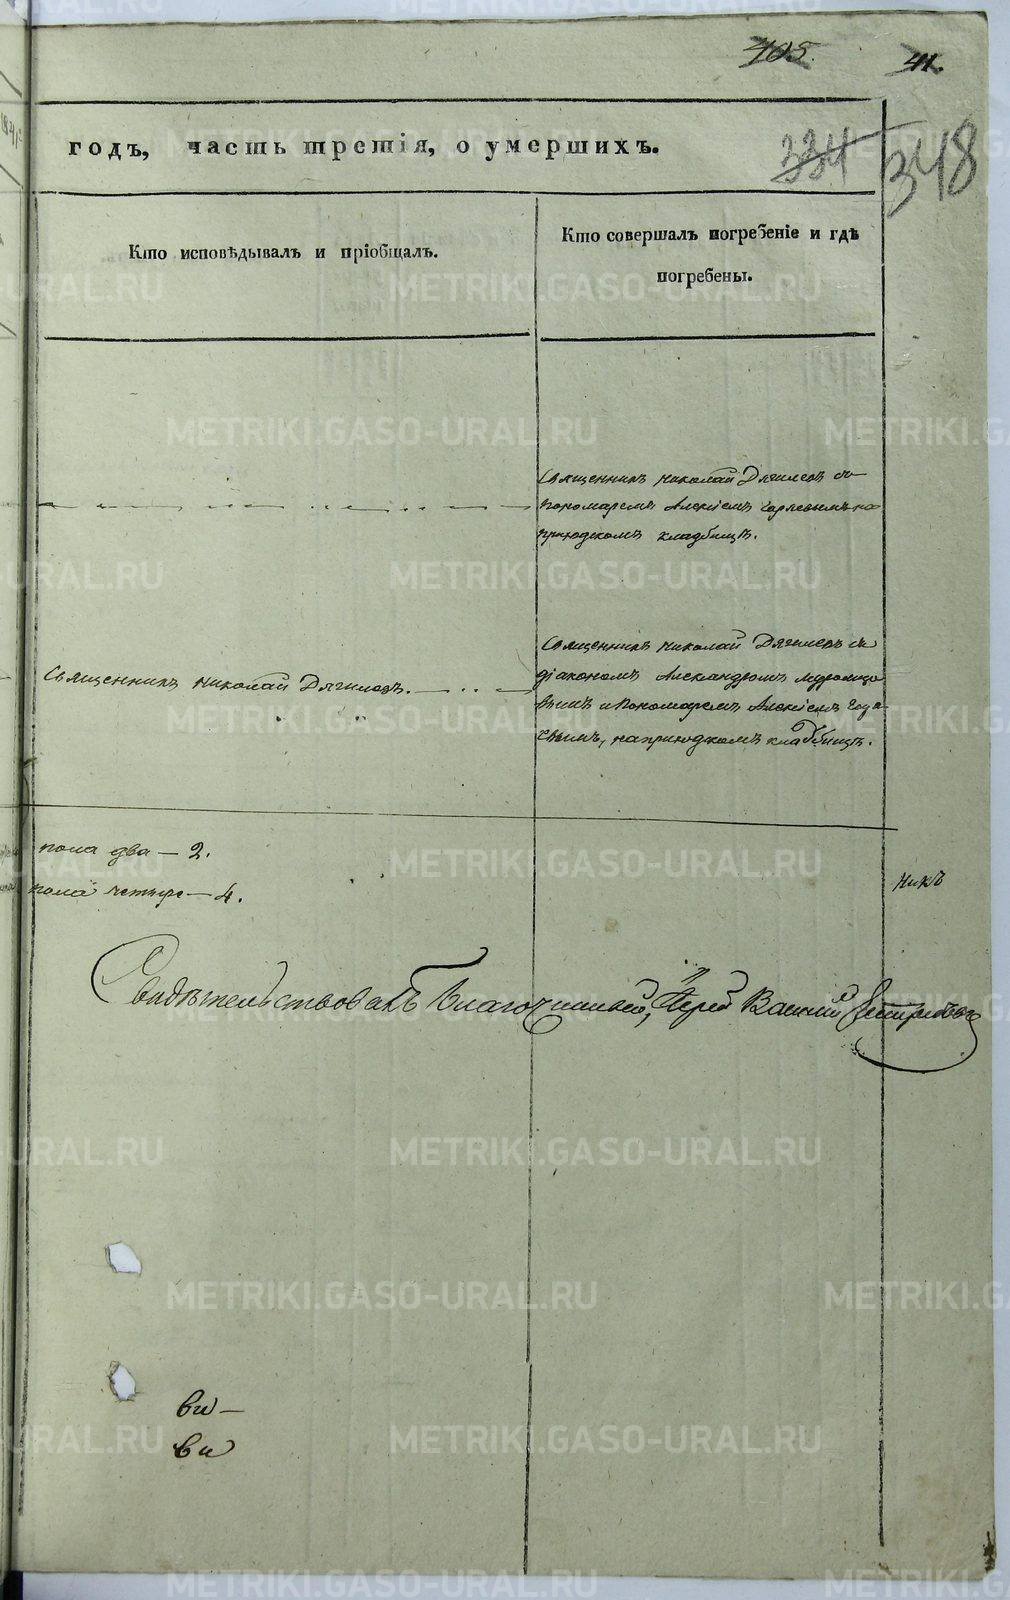 405. 41.
годъ, часть третія, о умершихъ.
334 348
Кто исповѣдывалъ и пріобщалъ.
Кто совершалъ погребеніе и гдѣ
погребены.
Священникъ Николай Дягилевъ съ
пономаремъ Алексіемъ на
приходскомъ кладбищѣ.
Священникъ Николай Дягилевъ.
Священникъ Николай Дягилевъ съ
діакономъ Александромъ
вымъ и пономаремъ Алексіемъ
вымъ, на приходскомъ кладбищѣ.
пола два — 2.
пола четыре — 4.
никъ
Свидѣтельствовалъ Благочинный, Іерей Василій
ви —
ви
METRIKI.GASO-URAL.RU